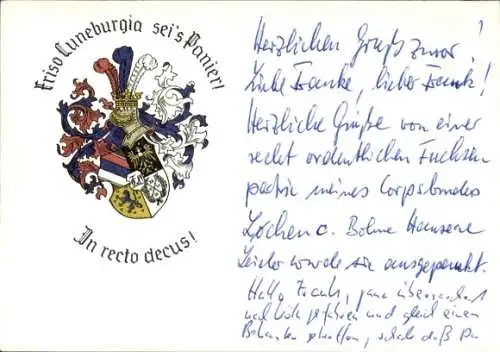 Friso Luneburgia sei's Panier!
In recto decus!
Herzlichen Gruß zuvor!
Liebe Frauke, lieber Frank!
Herzliche Grüße von einer
recht ordentlichen Fuchsen
partie meines Corpsbruders
Lochen c. Bohne
Leider wurde sie ausgepaukt.
Hallo Frank, ganz überrascht
nach gefahren und gleich einen
Bekannten getroffen, schade daß Du